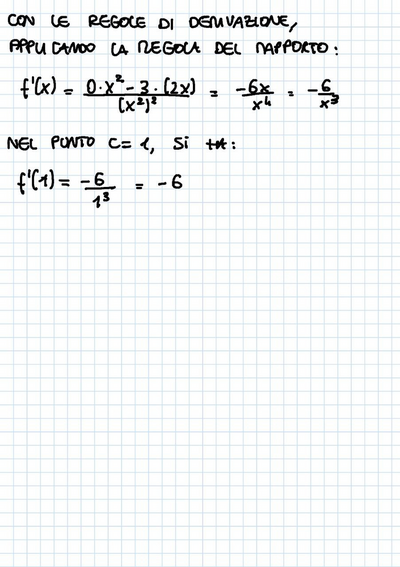 CON LE REGOLE DI DERIVAZIONE,
APPLICANDO LA REGOLA DEL RAPPORTO:
f'(x) = (0·x² - 3·(2x))/(x²)² = -6x/x⁴ = -6/x³
NEL PUNTO C = 1, SI HA:
f'(1) = -6/1³ = -6